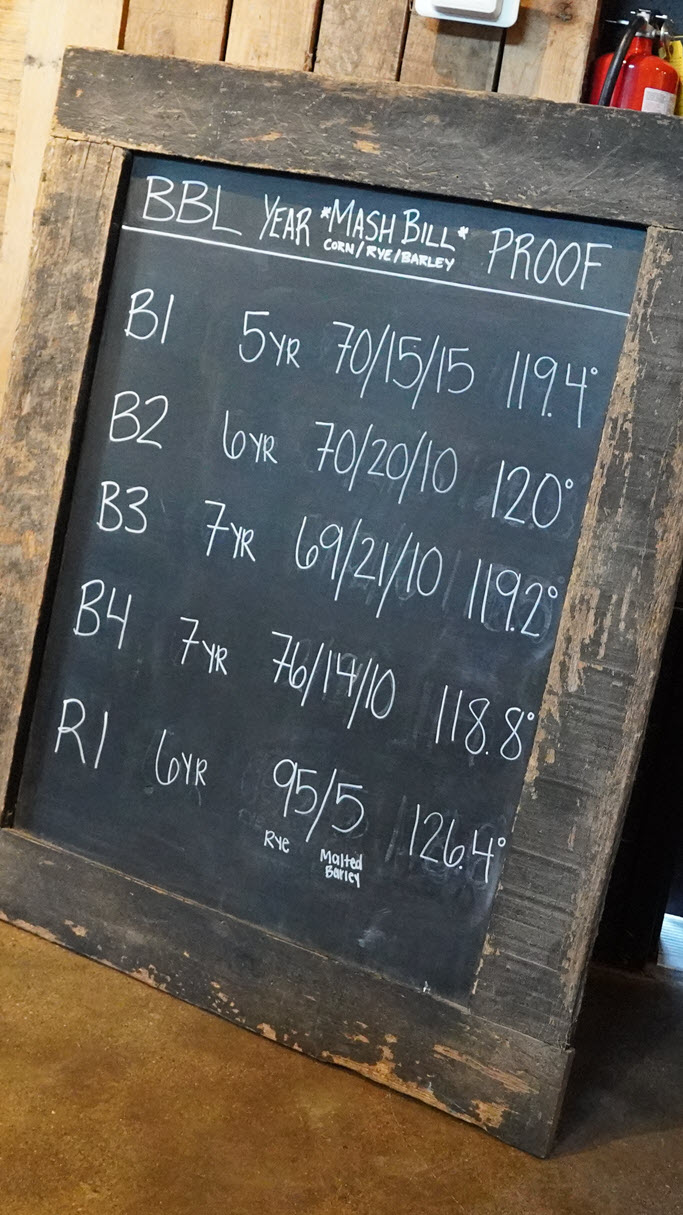 BBL YEAR *MASH BILL* PROOF
CORN/RYE/BARLEY
B1 5YR 70/15/15 119.4°
B2 6YR 70/20/10 120°
B3 7YR 69/21/10 119.2°
B4 7YR 76/14/10 118.8°
R1 6YR 95/5 126.4°
Rye Malted
Barley